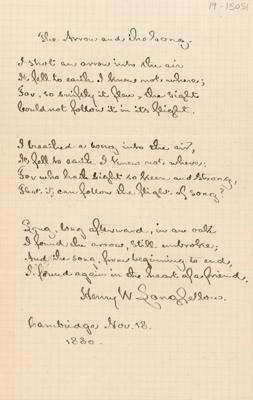 19-15051
The Arrow and The Song.
I shot an arrow into the air
It fell to earth I knew not where;
For, so swiftly it flew, the sight
Could not follow it in its flight.
I breathed a song into the air,
It fell to earth I knew not where;
For who hath sight so keen and strong,
That it can follow the flight of song?
Long, long afterward, in an oak
I found the arrow, still unbroke;
And the song, from beginning to end,
I found again in the heart of a friend.
Henry W Longfellow.
Cambridge Nov. 18.
1880.